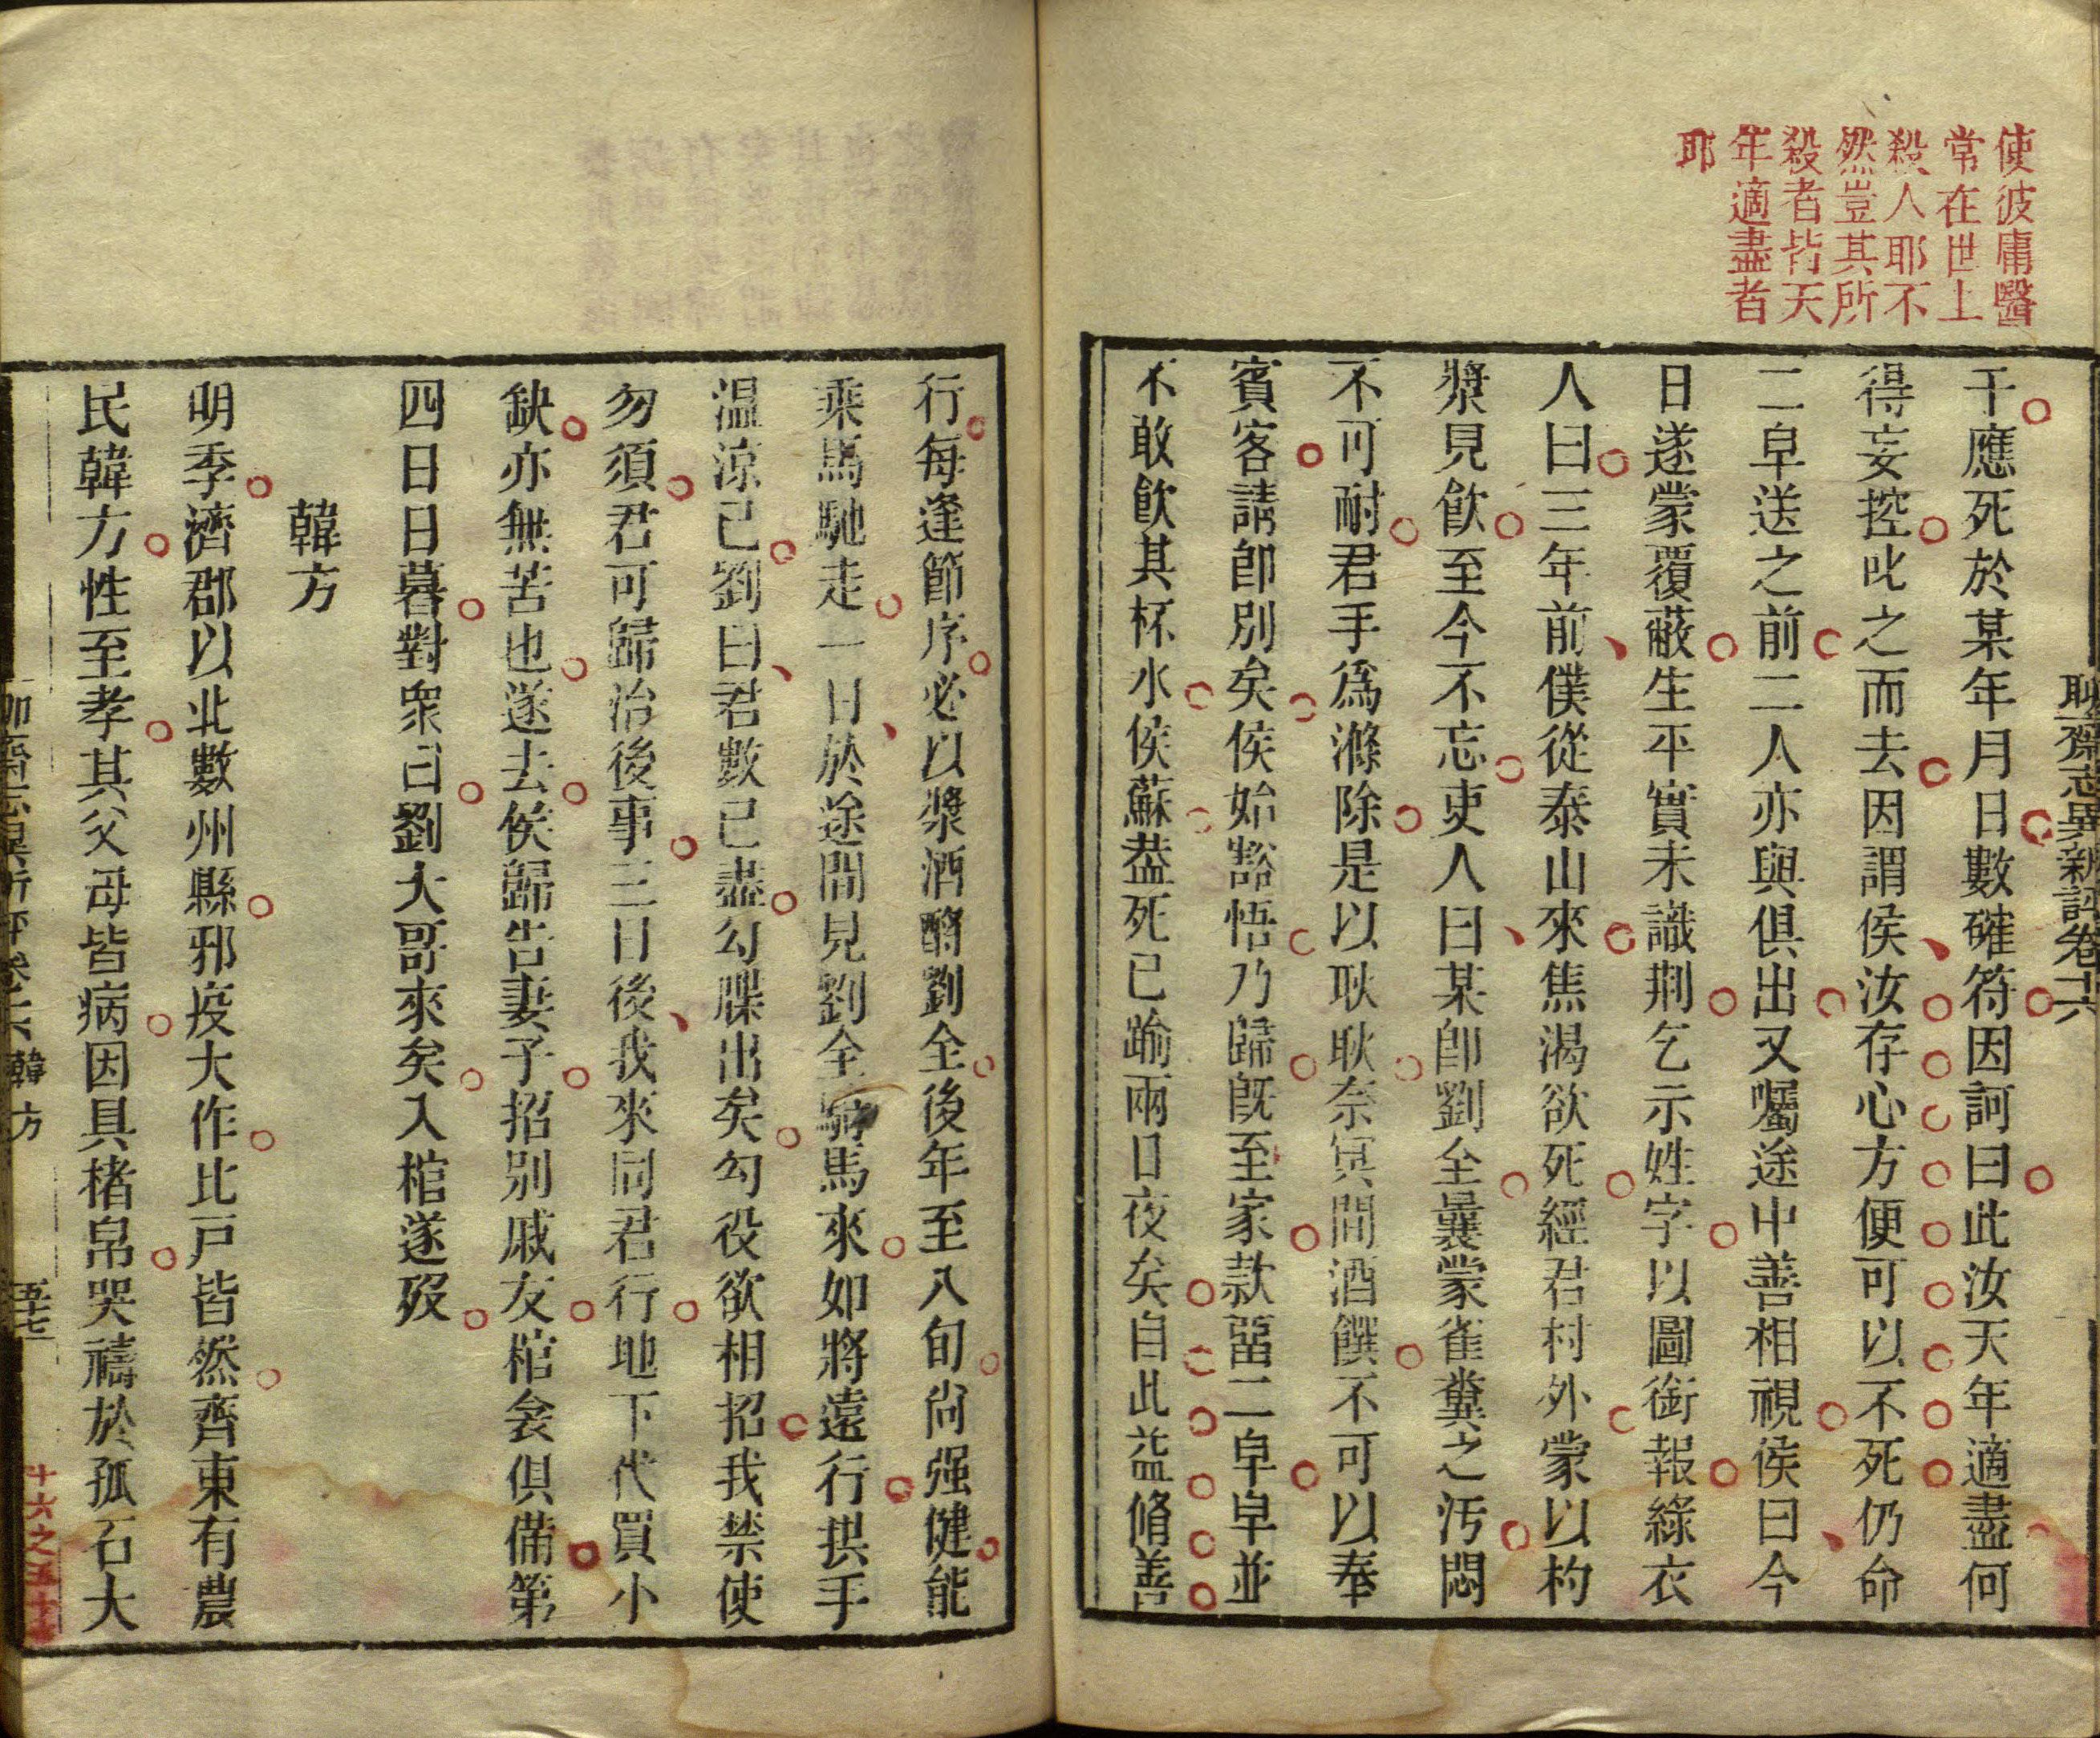 使彼庸醫
常在世上
殺人耶不
然豈其所
殺者皆天
年適盡者
耶
聊齋志異新評卷十六
干應死於某年月日數確符因訶曰此汝天年適盡何
得妄控叱之而去因謂侯汝存心方便可以不死仍命
二皁送之前二人亦與俱出又囑途中善相視侯曰今
日遂蒙覆蔽生平實未識荆乞示姓字以圖銜報綠衣
人曰三年前僕從泰山來焦渴欲死經君村外蒙以杓
漿見飮至今不忘吏人曰某卽劉全曩蒙雀糞之汚悶
不可耐君手爲滌除是以耿耿奈冥間酒饌不可以奉
賓客請卽別矣侯始豁悟乃歸旣至家款畱二皁皁並
不敢飮其杯水侯蘇葢死已踰兩日夜矣自此益脩善
行每逢節序必以漿酒酹劉全後年至八旬尙强健能
乘馬馳走一日於途間見劉全騎馬來如將遠行拱手
温涼已劉曰君數已盡勾牒出矣勾役欲相招我禁使
勿須君可歸治後事三日後我來同君行地下代買小
缺亦無苦也遂去侯歸告妻子招別戚友棺衾俱備第
四日日暮對衆曰劉大哥來矣入棺遂歿
韓方
明季濟郡以北數州縣邪疫大作比戸皆然齊東有農
民韓方性至孝其父母皆病因具楮帛哭禱於孤石大
聊齋志異新評卷十六 韓方 五十七
十六之五十七